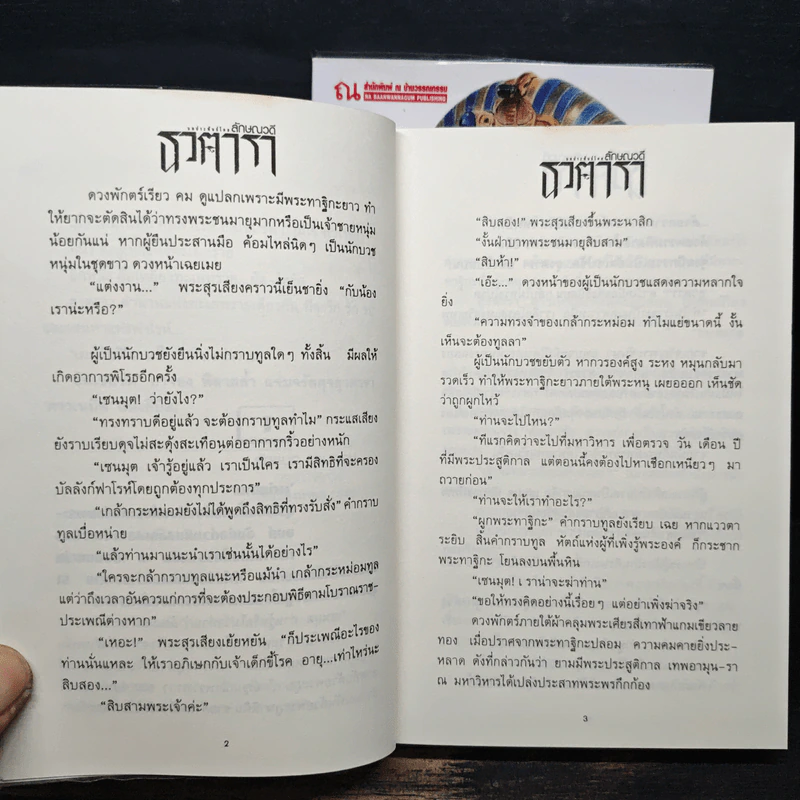 ณ สำนักพิมพ์ ณ บ้านวรรณกรรม
NA BAANWANNAGUM PUBLISHING
ลักษณวดี
ธวตารา
ดวงพักตร์เรียว คม ดูแปลกเพราะมีพระทาฐิกะยาว ทำ
ให้ยากจะตัดสินได้ว่าทรงพระชนมายุมากหรือเป็นเจ้าชายหนุ่ม
น้อยกันแน่ หากผู้ยืนประสานมือ ค้อมไหล่นิดๆ เป็นนักบวช
หนุ่มในชุดขาว ดวงหน้าเฉยเมย
“แต่งงาน...” พระสุรเสียงคราวนี้เย็นชายิ่ง “กับน้อง
เราน่ะหรือ?”
ผู้เป็นนักบวชยังยืนนิ่งไม่กราบทูลใดๆ ทั้งสิ้น มีผลให้
เกิดอาการพิโรธอีกครั้ง
“เซนมุต! ว่ายังไง?”
“ทรงทราบดีอยู่แล้ว จะต้องกราบทูลทำไม” กระแสเสียง
ยังราบเรียบดุจไม่สะดุ้งสะเทือนต่ออาการกริ้วอย่างหนัก
“เซนมุต เจ้ารู้อยู่แล้ว เราเป็นใคร เรามีสิทธิที่จะครอง
บัลลังก์ฟาโรห์โดยถูกต้องทุกประการ”
“เกล้ากระหม่อมยังไม่ได้พูดถึงสิทธิที่ทรงรับสั่ง” คำกราบ
ทูลเบื่อหน่าย
“แล้วท่านมาแนะนำเราเช่นนั้นได้อย่างไร”
“ใครจะกล้ากราบทูลแนะหรือแม้นำ เกล้ากระหม่อมทูล
แต่ว่าถึงเวลาอันควรแก่การที่จะต้องประกอบพิธีตามโบราณราช-
ประเพณีต่างหาก”
“เหอะ!” พระสุรเสียงเย้ยหยัน “ก็ประเพณีอะไรของ
ท่านนั่นแหละ ให้เราอภิเษกกับเจ้าเด็กขี้โรค อายุ...เท่าไหร่นะ
สิบสอง...”
“สิบสามพระเจ้าค่ะ”
2
ลักษณวดี
ธวตารา
“สิบสอง!” พระสุรเสียงขึ้นพระนาสิก
“งั้นฝ่าบาทพระชนมายุสิบสาม”
“สิบห้า!”
“เอ๊ะ...” ดวงหน้าของผู้เป็นนักบวชแสดงความหลากใจ
ยิ่ง
“ความทรงจำของเกล้ากระหม่อม ทำไมแย่ขนาดนี้ งั้น
เห็นจะต้องทูลลา”
ผู้เป็นนักบวชขยับตัว หากวรองค์สูง ระหง หมุนกลับมา
รวดเร็ว ทำให้พระทาฐิกะยาวภายใต้พระหนุ เผยอออก เห็นชัด
ว่าถูกผูกไหว้
“ท่านจะไปไหน?”
“ทีแรกคิดว่าจะไปที่มหาวิหาร เพื่อตรวจ วัน เดือน ปี
ที่มีพระประสูติกาล แต่ตอนนี้คงต้องไปหาเชือกเหนียวๆ มา
ถวายก่อน”
“ท่านจะให้เราทำอะไร?”
“ผูกพระทาฐิกะ” คำกราบทูลยังเรียบ เฉย หากแววตา
ระยิบ สิ้นคำกราบทูล หัตถ์แห่งผู้ที่เพิ่งรู้พระองค์ ก็กระชาก
พระทาฐิกะ โยนลงบนพื้นหิน
“เซนมุต! เราน่าจะฆ่าท่าน”
“ขอให้ทรงคิดอย่างนี้เรื่อยๆ แต่อย่าเพิ่งฆ่าจริง”
ดวงพักตร์ภายใต้ผ้าคลุมพระเศียรสีเทาฟ้าแกมเขียวลาย
ทอง เมื่อปราศจากพระทาฐิกะปลอม ความคมคายยิ่งประ-
หลาด ดังที่กล่าวกันว่า ยามมีพระประสูติกาล เทพอามุน-รา
ณ มหาวิหารได้เปล่งประสาทพระพรกึกก้อง
3